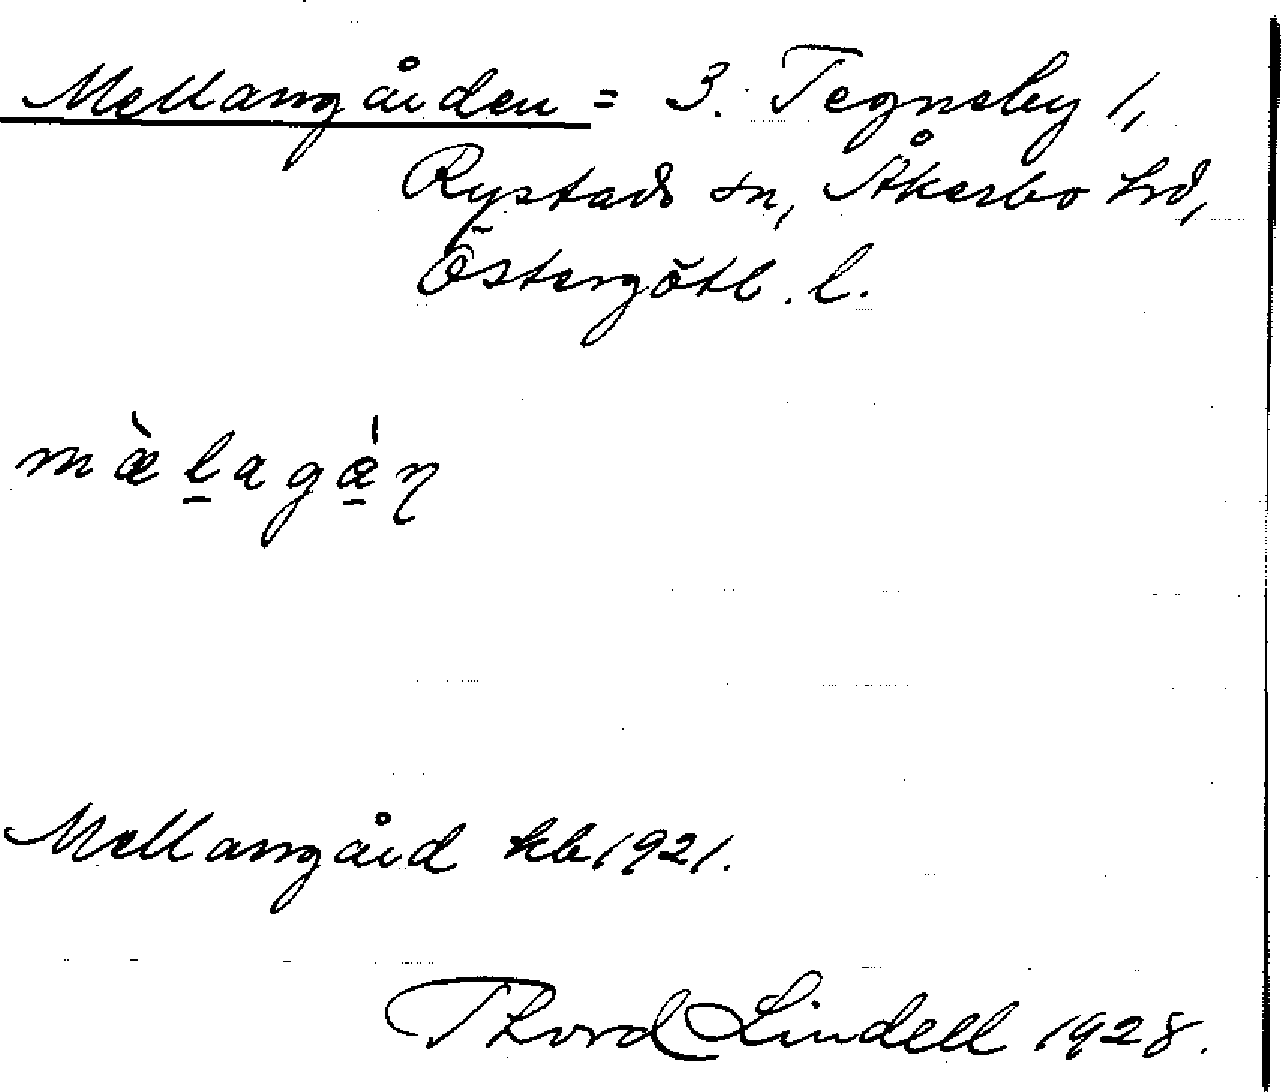 Mellangården = 3. Tegneby 1,
Rystads sn, Åkerbo hd,
Östergötl. l.
mæ̀l̠agǽ̠ŋ
Mellangård kb 1921.
Thord Lindell 1928.